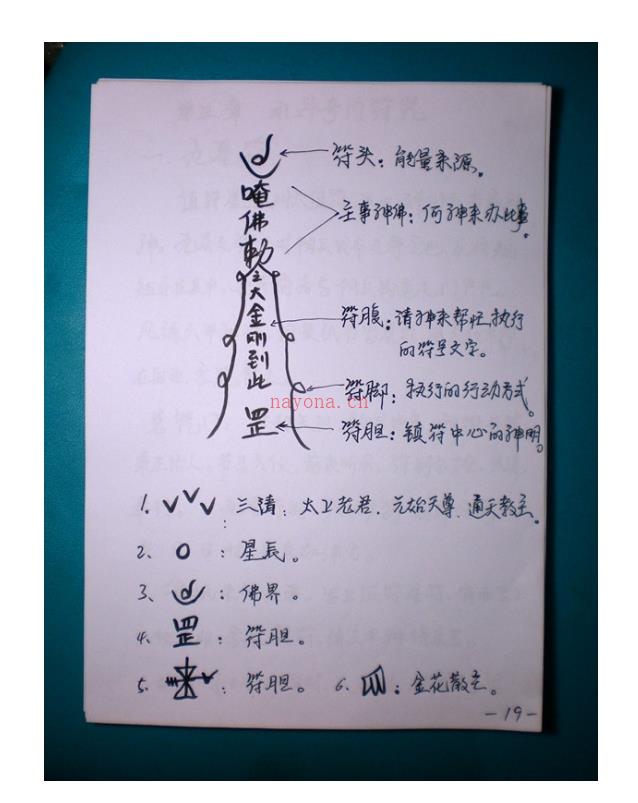 符头：能量来源。
唵佛勅
主事神佛：何神来办此事。
之大金刚到此
符腹：请神来帮忙执行
的符号文字。
符脚：执行的行动方式。
nayona.cn
罡
符胆：镇符中心的神明。
1. ✓✓✓：三清：太上老君、元始天尊、通天教主。
2、o：星辰。
3、：佛界。
4、罡：符胆。
5、：符胆。 6、：金花教主。
-19-